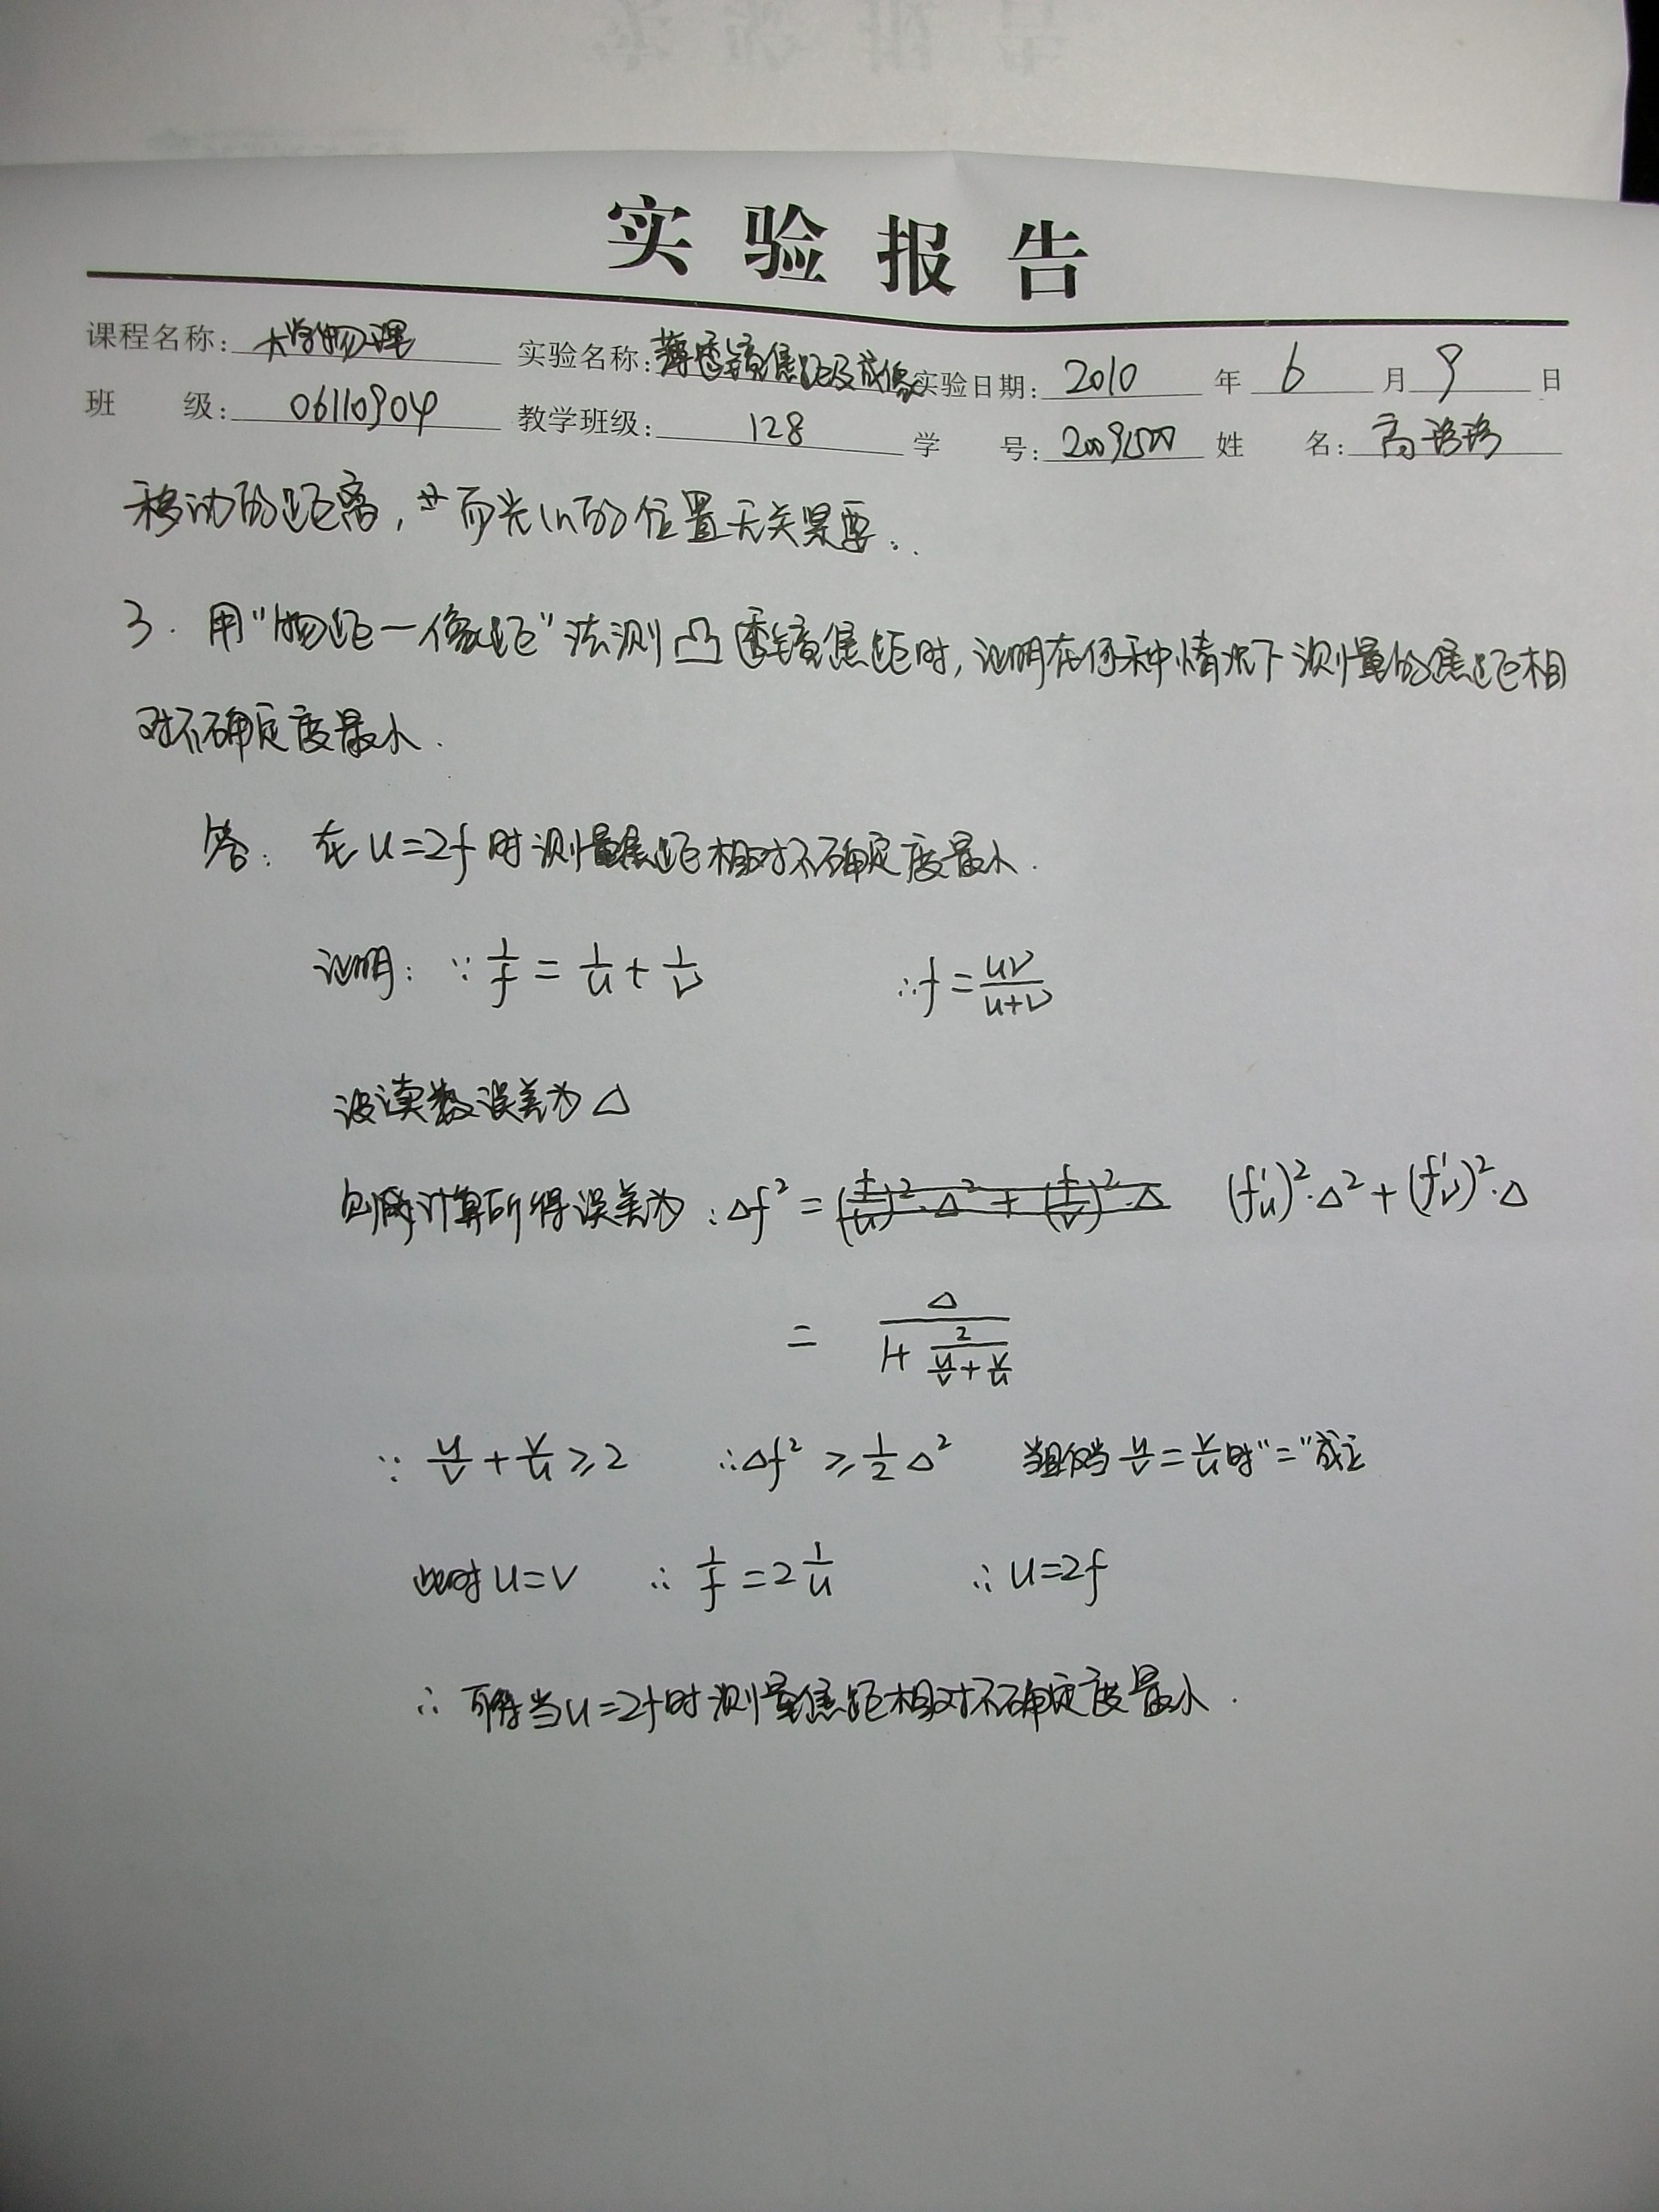 实验报告
课程名称: 大学物理 实验名称: 薄透镜焦距及成像 实验日期: 2010 年 6 月 9 日
班 级: 06110904 教学班级: 128 学 号: 姓 名: 高
移动的距离, 而光心的位置无关紧要.
3. 用"物距-像距"法测凸透镜焦距时, 证明在何种情况下测量的焦距相
对不确定度最小.
答: 在u=2f时测量焦距相对不确定度最小.
证明: ∵ 1/f = 1/u + 1/v ∴f = uv/(u+v)
设读数误差为△
则计算所得误差为: △f² = (f'u)²·△² + (f'v)²·△
= △/(1+2/(u/v+v/u))
∵ u/v + v/u ≥ 2 ∴△f² ≥ 1/2 △² 当且仅当 u/v = v/u 时"="成立
此时u=v ∴ 1/f = 2 1/u ∴ u=2f
∴ 可得当u=2f时测量焦距相对不确定度最小.